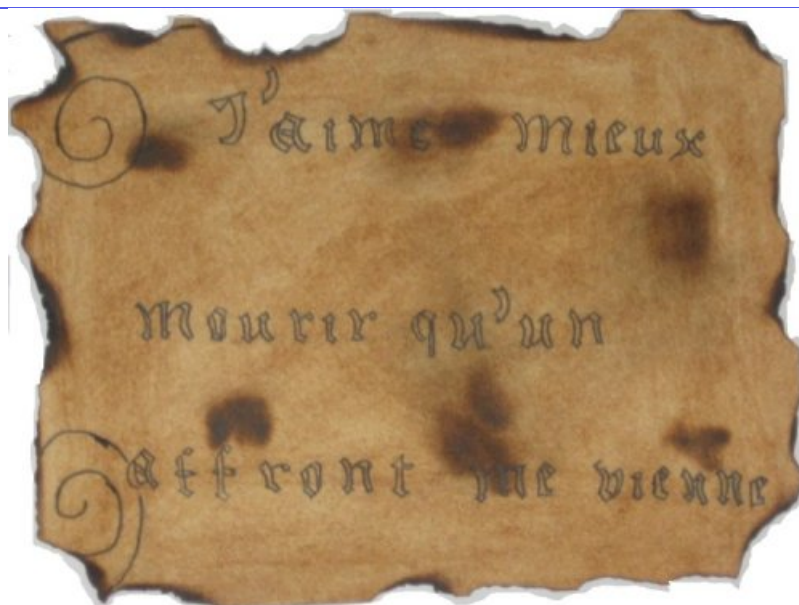 J'aime Mieux
Mourir qu'un
affront me vienne